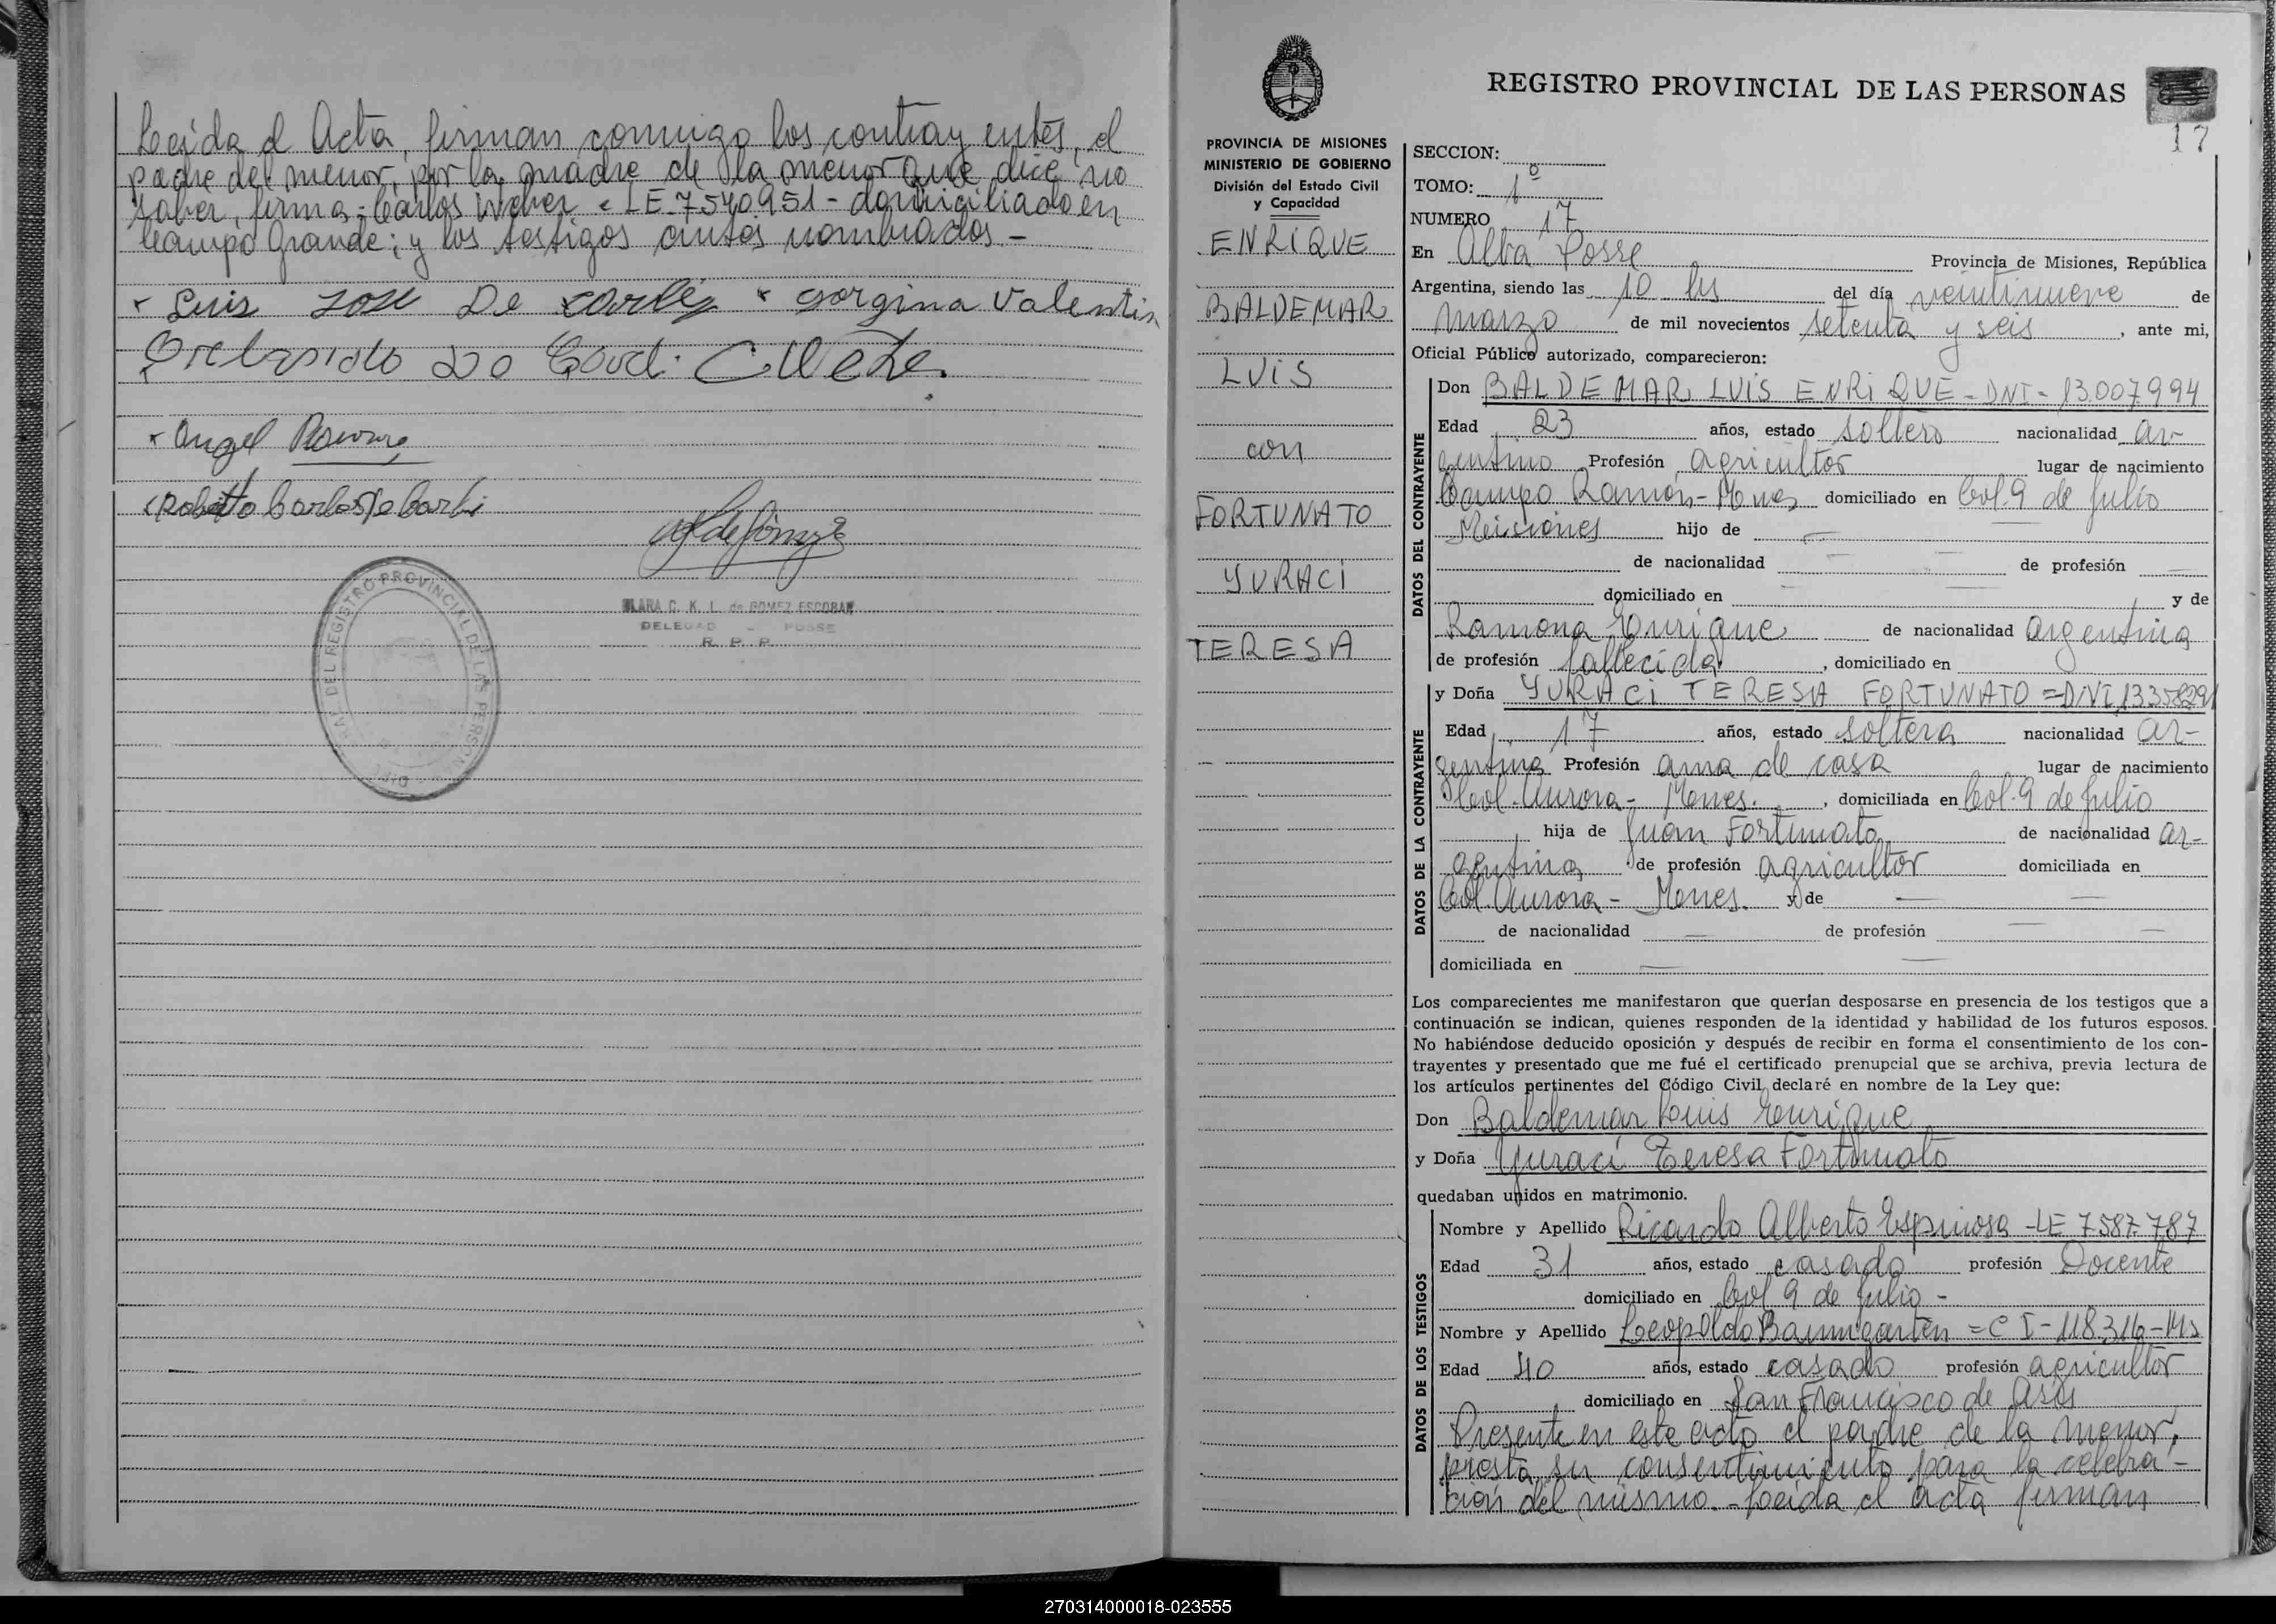 Leída el Acta, firman conmigo los contrayentes, el
padre del menor, por la madre de la menor que dice no
saber, firma: Carlos Weber - LE. 7540951 - domiciliado en
Campo Grande; y los testigos antes nombrados -
x Luis Jose De x Gorgina Valentin
Do
x Angel
Roberto Carlos
CLARA C. K. L. de GOMEZ ESCOBAR
POSSE
R. P. P.
DEL REGISTRO PROVINCIAL DE LAS PERSONAS
REGISTRO PROVINCIAL DE LAS PERSONAS
17
PROVINCIA DE MISIONES
MINISTERIO DE GOBIERNO
División del Estado Civil
y Capacidad
ENRIQUE
BALDEMAR
LUIS
con
FORTUNATO
YURACI
TERESA
SECCION:
TOMO: 1º
NUMERO 17
En Alba Posse Provincia de Misiones, República
Argentina, siendo las 10 hs del día veintinueve de
marzo de mil novecientos setenta y seis, ante mi,
Oficial Público autorizado, comparecieron:
DATOS DEL CONTRAYENTE
Don BALDEMAR LUIS ENRIQUE - DNI - 13.007994
Edad 23 años, estado soltero nacionalidad ar-
gentino Profesión agricultor lugar de nacimiento
Campo Ramón - Mnes domiciliado en Col. 9 de Julio
Misiones hijo de —
de nacionalidad — de profesión —
domiciliado en y de
Ramona Enrique de nacionalidad argentina
de profesión fallecida, domiciliado en
DATOS DE LA CONTRAYENTE
y Doña YURACI TERESA FORTUNATO = DNI
Edad 17 años, estado soltera nacionalidad ar-
gentina Profesión ama de casa lugar de nacimiento
Col. Aurora - Mnes., domiciliada en Col. 9 de Julio
hija de Juan Fortunato de nacionalidad ar-
gentina de profesión agricultor domiciliada en
Col. Aurora - Mnes. y de —
de nacionalidad — de profesión —
domiciliada en —
Los comparecientes me manifestaron que querían desposarse en presencia de los testigos que a
continuación se indican, quienes responden de la identidad y habilidad de los futuros esposos.
No habiéndose deducido oposición y después de recibir en forma el consentimiento de los con-
trayentes y presentado que me fué el certificado prenupcial que se archiva, previa lectura de
los artículos pertinentes del Código Civil, declaré en nombre de la Ley que:
Don Baldemar Luis Enrique
y Doña Yuraci Teresa Fortunato
quedaban unidos en matrimonio.
DATOS DE LOS TESTIGOS
Nombre y Apellido Ricardo Alberto Espinosa - LE 7.587.787
Edad 31 años, estado casado profesión Docente
domiciliado en Col 9 de Julio -
Nombre y Apellido Leopoldo Baumgarten = C I - 118.316 - Ms
Edad 40 años, estado casado profesión agricultor
domiciliado en San Francisco de Asís
Presente en este acto el padre de la menor,
presta su consentimiento para la celebra-
ción del mismo. - Leída el acta firman
270314000018-023555